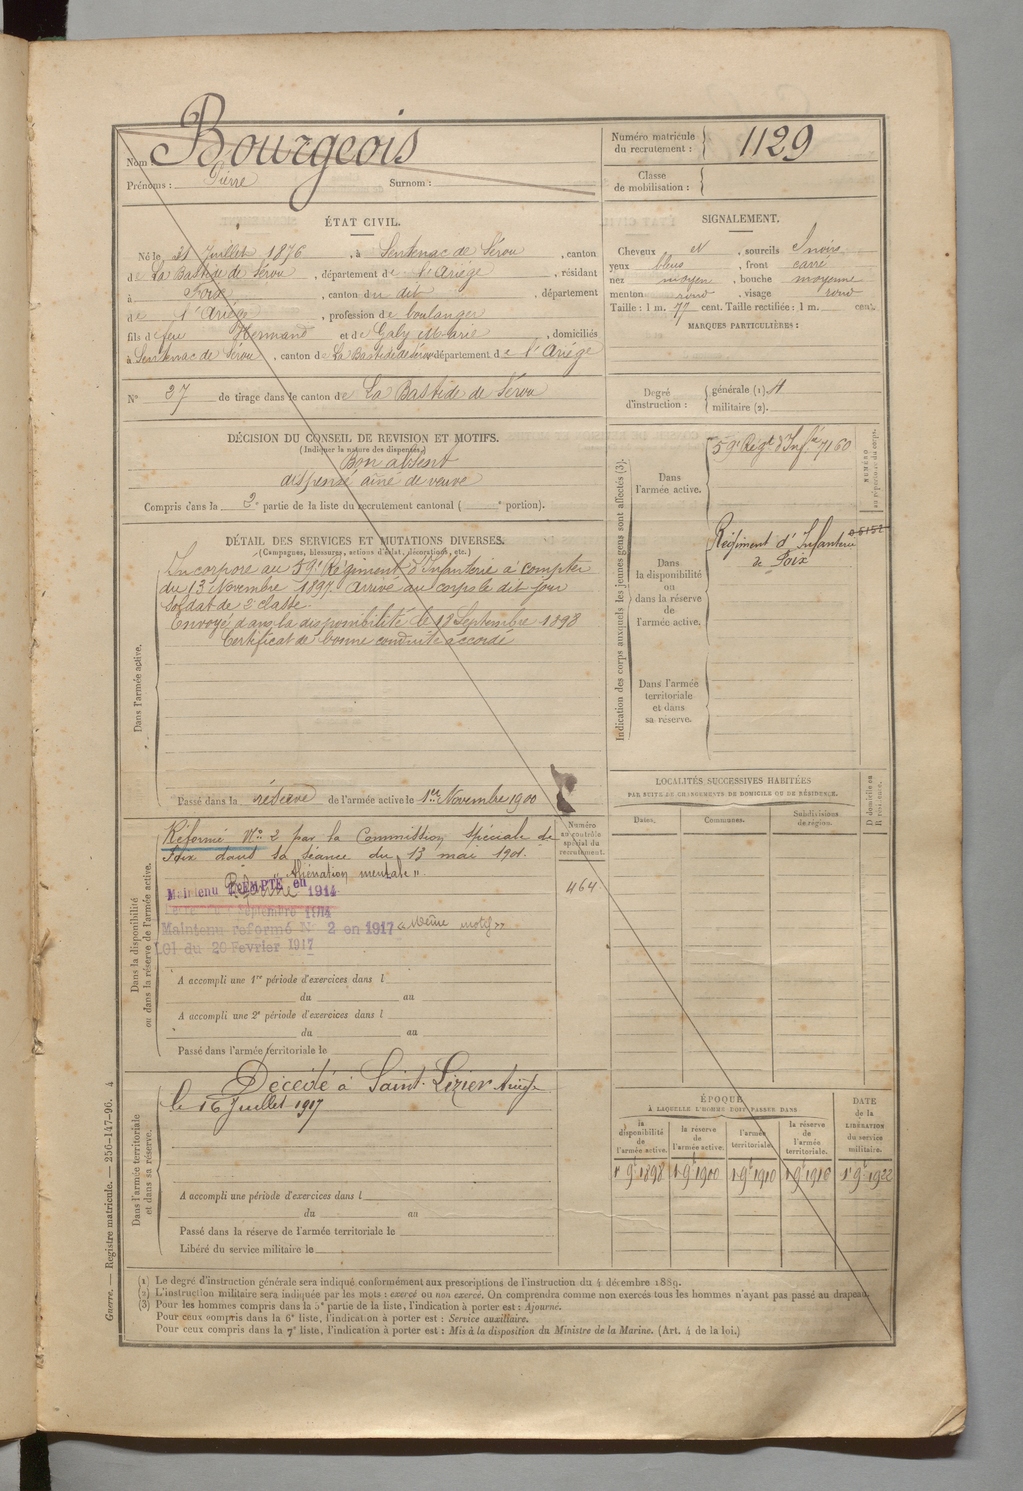 Nom : Bourgeois
Prénoms : Pierre Surnom :
Numéro matricule
du recrutement : 1129
Classe
de mobilisation :
ÉTAT CIVIL.
Né le 21 Juillet 1876, à Sentenac de Sérou, canton
de La Bastide de Sérou, département de l'Ariège, résidant
à Foix, canton du dit, département
de l'Ariège, profession de boulanger
fils de feu Hermand et de Galy Marie, domiciliés
à Sentenac de Sérou, canton de La Bastide de Sérou département de l'Ariège
N° 27 de tirage dans le canton de La Bastide de Sérou
SIGNALEMENT.
Cheveux et, sourcils noirs
yeux bleus, front carré
nez moyen, bouche moyenne
menton rond, visage rond
Taille : 1 m. 77 cent. Taille rectifiée : 1 m. cent.
MARQUES PARTICULIÈRES :
Degré
d'instruction :
générale (1).
militaire (2).
DÉCISION DU CONSEIL DE REVISION ET MOTIFS.
(Indiquer la nature des dispenses.)
Bon absent
dispensé aîné de veuve
Compris dans la 2e partie de la liste du recrutement cantonal ( e portion).
DÉTAIL DES SERVICES ET MUTATIONS DIVERSES.
(Campagnes, blessures, actions d'éclat, décorations, etc.)
Dans l'armée active.
Incorporé au 59e Régiment d'Infanterie à compter
du 13 Novembre 1897. Arrivé au corps le dit jour
soldat de 2e classe.
Envoyé dans la disponibilité le 18 Septembre 1898
Certificat de bonne conduite accordé
Passé dans la réserve de l'armée active le 1er Novembre 1900
Indication des corps auxquels les jeunes gens sont affectés (3).
Dans
l'armée active.
59e Régt d'Infie 7160
NUMÉRO
au répertoire du corps.
Dans
la disponibilité
ou
dans la réserve
de
l'armée active.
Régiment d'Infanterie
de Foix
Dans l'armée
territoriale
et dans
sa réserve.
LOCALITÉS SUCCESSIVES HABITÉES
PAR SUITE DE CHANGEMENTS DE DOMICILE OU DE RÉSIDENCE.
Dates. Communes. Subdivisions
de région.
D domicile ou
R résidence.
Dans la disponibilité
ou dans la réserve de l'armée active.
Numéro
au contrôle
spécial du
recrutement.
464
Réformé No 2 par la Commission spéciale de
Foix dans sa séance du 13 mai 1901.
"Aliénation mentale".
Maintenu EXEMPTÉ en 1914
Réformé
Septembre 1914
Maintenu réformé N° 2 en 1917 "Même motif"
LOI du 20 Fevrier 1917
A accompli une 1re période d'exercices dans l
du au
A accompli une 2e période d'exercices dans l
du au
Passé dans l'armée territoriale le
Dans l'armée territoriale
et dans sa réserve.
Décédé à Saint-Lizier Ariège
le 16 Juillet 1917
A accompli une période d'exercices dans l
du au
Passé dans la réserve de l'armée territoriale le
Libéré du service militaire le
ÉPOQUE
À LAQUELLE L'HOMME DOIT PASSER DANS
la
disponibilité
de
l'armée active.
la réserve
de
l'armée active.
l'armée
territoriale.
la réserve
de
l'armée
territoriale.
DATE
de la
LIBÉRATION
du service
militaire.
1er 9b 1898 1 9b 1900 1 9b 1910 1 9b 1916 1er 9b 1922
(1) Le degré d'instruction générale sera indiqué conformément aux prescriptions de l'instruction du 4 décembre 1889.
(2) L'instruction militaire sera indiquée par les mots : exercé ou non exercé. On comprendra comme non exercés tous les hommes n'ayant pas passé au drapeau.
(3) Pour les hommes compris dans la 5e partie de la liste, l'indication à porter est : Ajourné.
Pour ceux compris dans la 6e liste, l'indication à porter est : Service auxiliaire.
Pour ceux compris dans la 7e liste, l'indication à porter est : Mis à la disposition du Ministre de la Marine. (Art. 4 de la loi.)
Guerre. — Registre matricule. — 256-147-96. 4